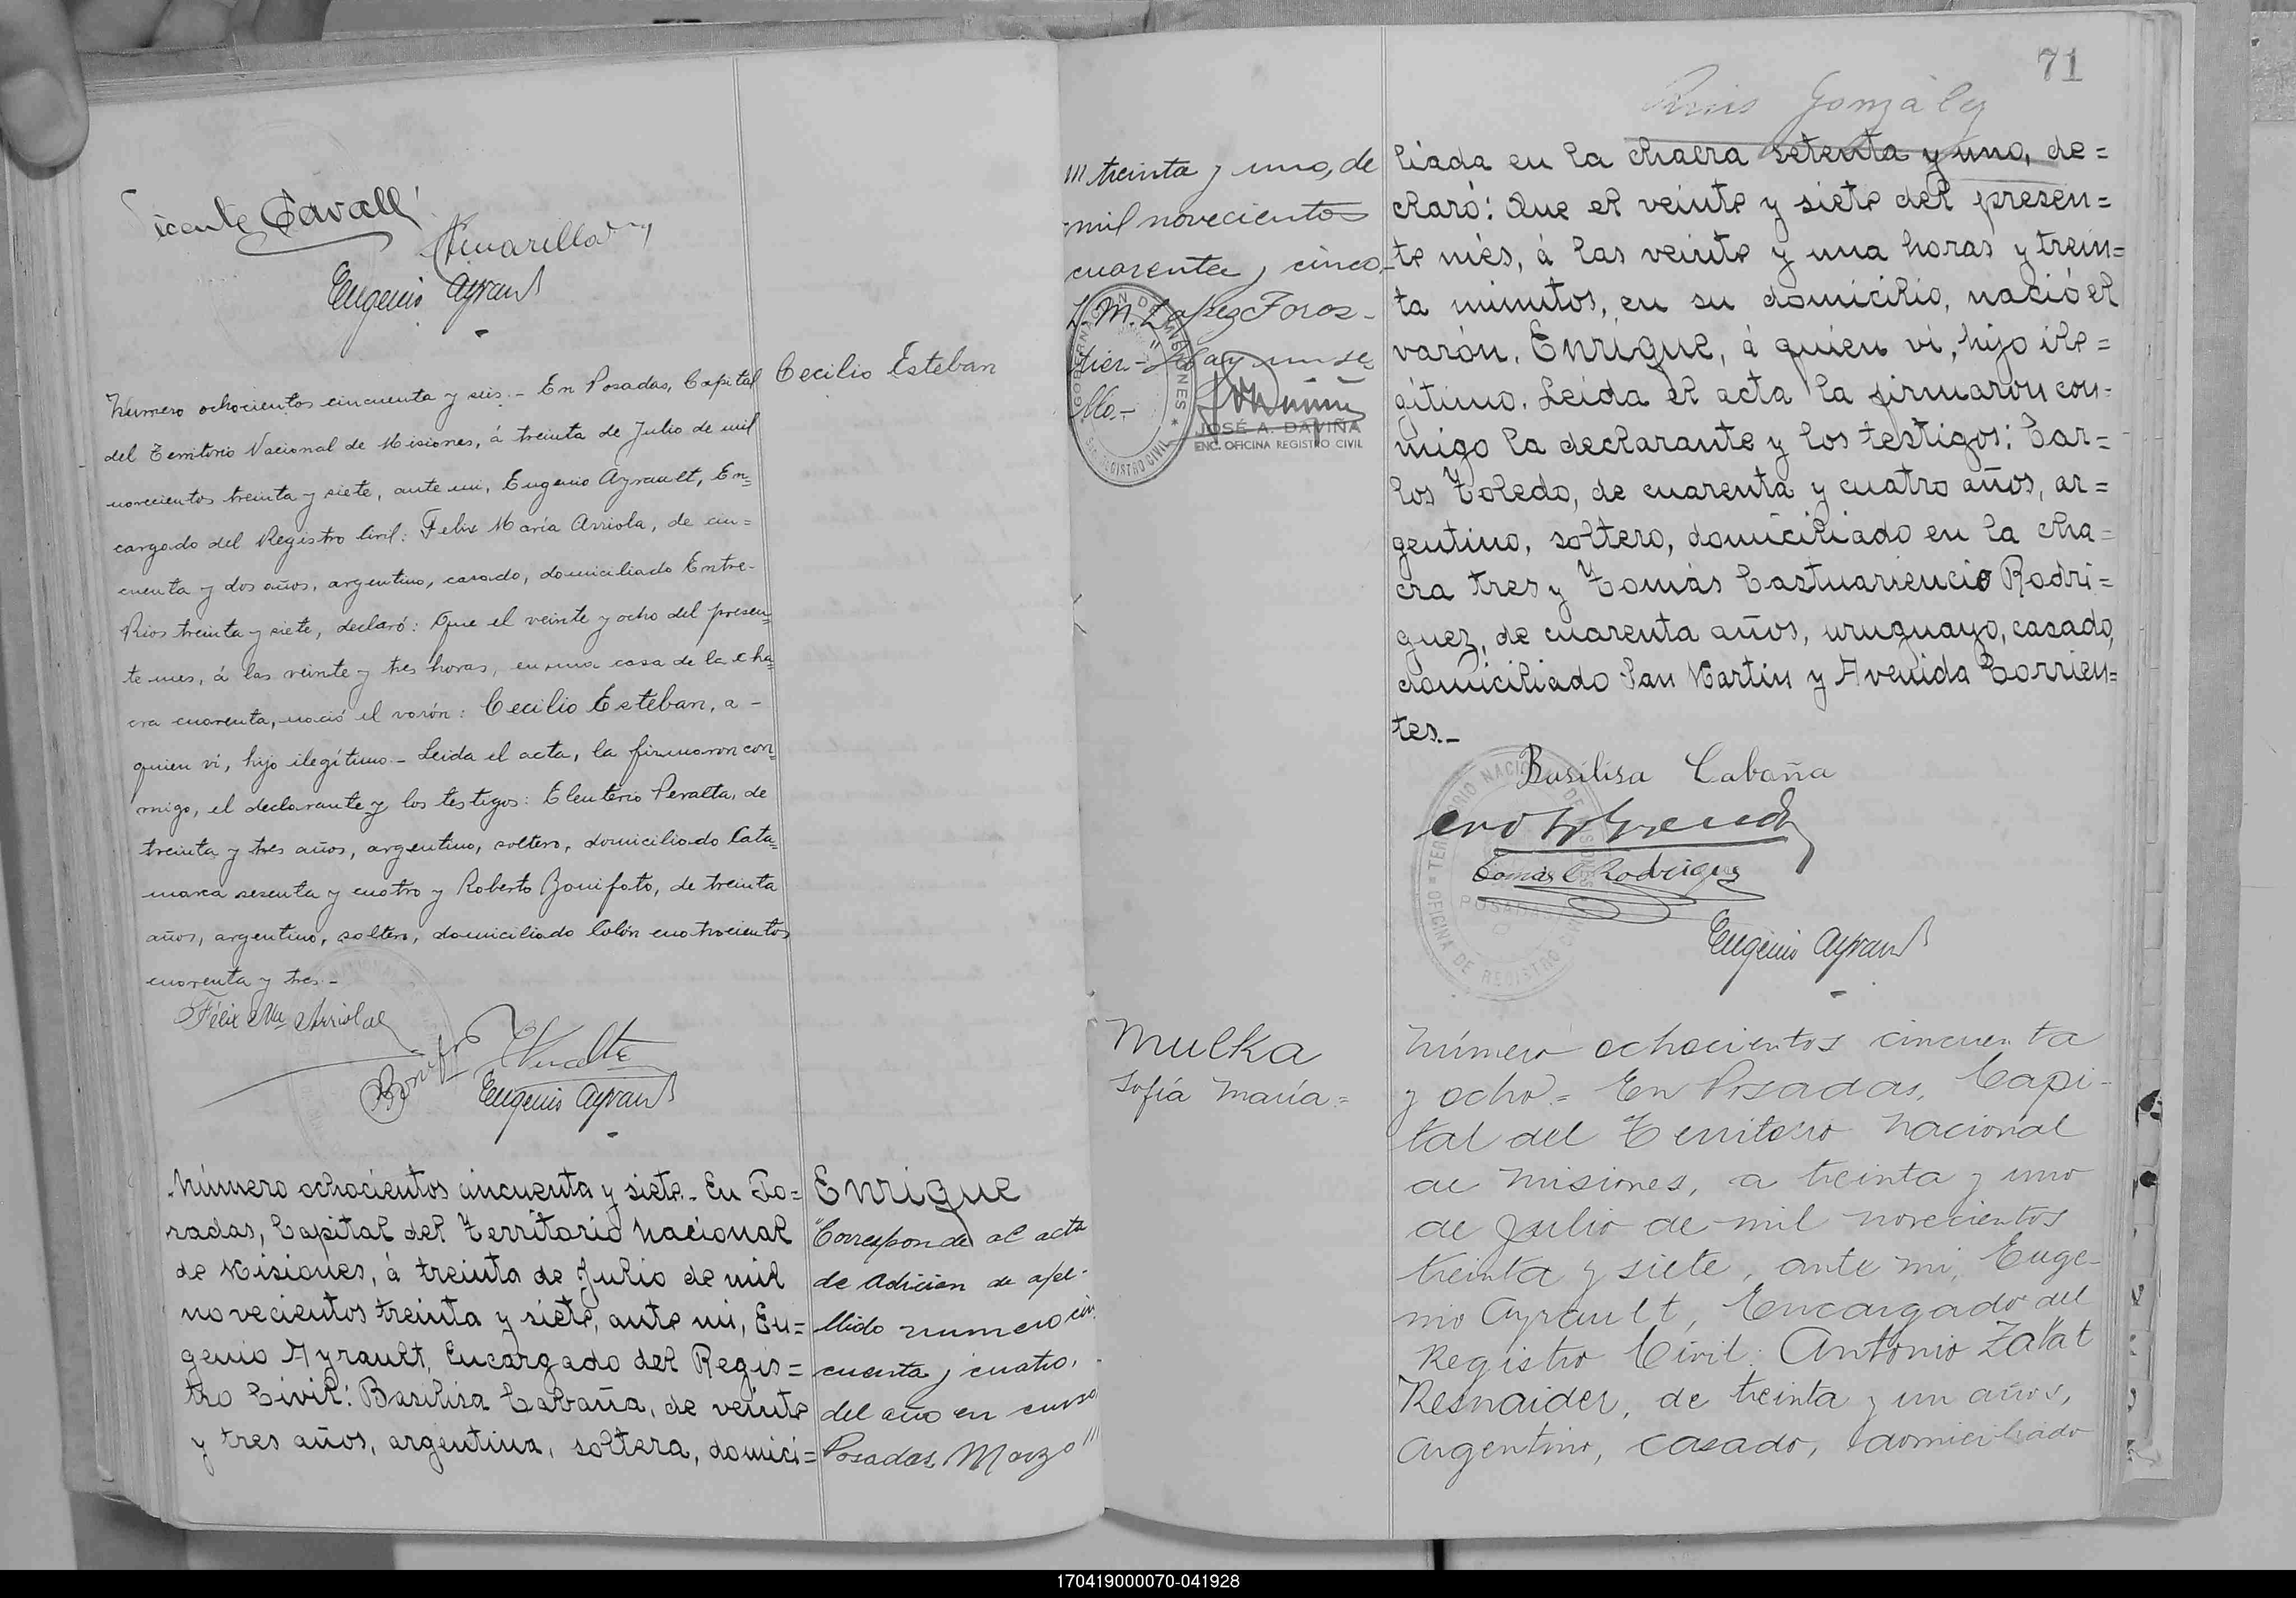 Vicente Cavalli
Eugenio Ayrault
Cecilio Esteban
Número ochocientos cincuenta y seis.- En Posadas, Capital
del Territorio Nacional de Misiones, á treinta de Julio de mil
novecientos treinta y siete, ante mi, Eugenio Ayrault, En=
cargado del Registro Civil: Felix María Arriola, de cin=
cuenta y dos años, argentino, casado, domiciliado Entre-
Rios treinta y siete, declaró: Que el veinte y ocho del presen=
te mes, á las veinte y tres horas, en una casa de la cha=
cra cuarenta, nació el varón: Cecilio Esteban, a -
quien vi, hijo ilegítimo.- Leida el acta, la firmaron con=
migo, el declarante y los testigos: Eleuterio Peralta, de
treinta y tres años, argentino, soltero, domiciliado Cata=
marca sesenta y cuatro y Roberto Bonifato, de treinta
años, argentino, soltero, domiciliado Colón cuatrocientos
cuarenta y tres.-
Félix Ma Arriola
Eugenio Ayrault
Número ochocientos cincuenta y siete.- En Po=
sadas, Capital del Territorio Nacional
de Misiones, á treinta de Julio de mil
novecientos treinta y siete, ante mi, Eu=
genio Ayrault, Encargado del Regis=
tro Civil: Basilisa Cabaña, de veinte
y tres años, argentina, soltera, domici=
Enrique
"Corresponde al acta
de Adicion de ape-
llido numero cin
cuenta y cuatro,
del año en curso
Posadas, Marzo ///
71
González
/// treinta y uno, de
mil novecientos
cuarenta y cinco
L. M. Lopez Foros-
tier - Hay un se
llo.-
GOBERNACIÓN DE MISIONES
REGISTRO CIVIL
JOSÉ A. DAVIÑA
ENC. OFICINA REGISTRO CIVIL
liada en la chacra setenta y uno, de=
claró: Que el veinte y siete del presen=
te més, á las veinte y una horas y trein=
ta minutos, en su domicilio, nació el
varón, Enrique, á quien vi, hijo ile=
gitimo. Leida el acta la firmaron con=
migo la declarante y los testigos: Car=
los Toledo, de cuarenta y cuatro años, ar=
gentino, soltero, domiciliado en la cha=
cra tres y Tomás Castuariencio Rodri=
guez, de cuarenta años, uruguayo, casado,
domiciliado San Martin y Avenida Corrien=
tes.-
Basilisa Cabaña
Tomás C Rodriguez
Eugenio Ayrault
TERRITORIO NACIONAL DE MISIONES
OFICINA DE REGISTRO CIVIL
POSADAS
Mulka
Sofía María=
Número ochocientos cincuenta
y ocho.= En Posadas, Capi-
tal del Territorio Nacional
de Misiones, a treinta y uno
de Julio de mil novecientos
treinta y siete, ante mi, Euge-
nio Ayrault, Encargado del
Registro Civil: Antonio Zallat
Resnaider, de treinta y un años,
argentino, casado, domiciliado
170419000070-041928